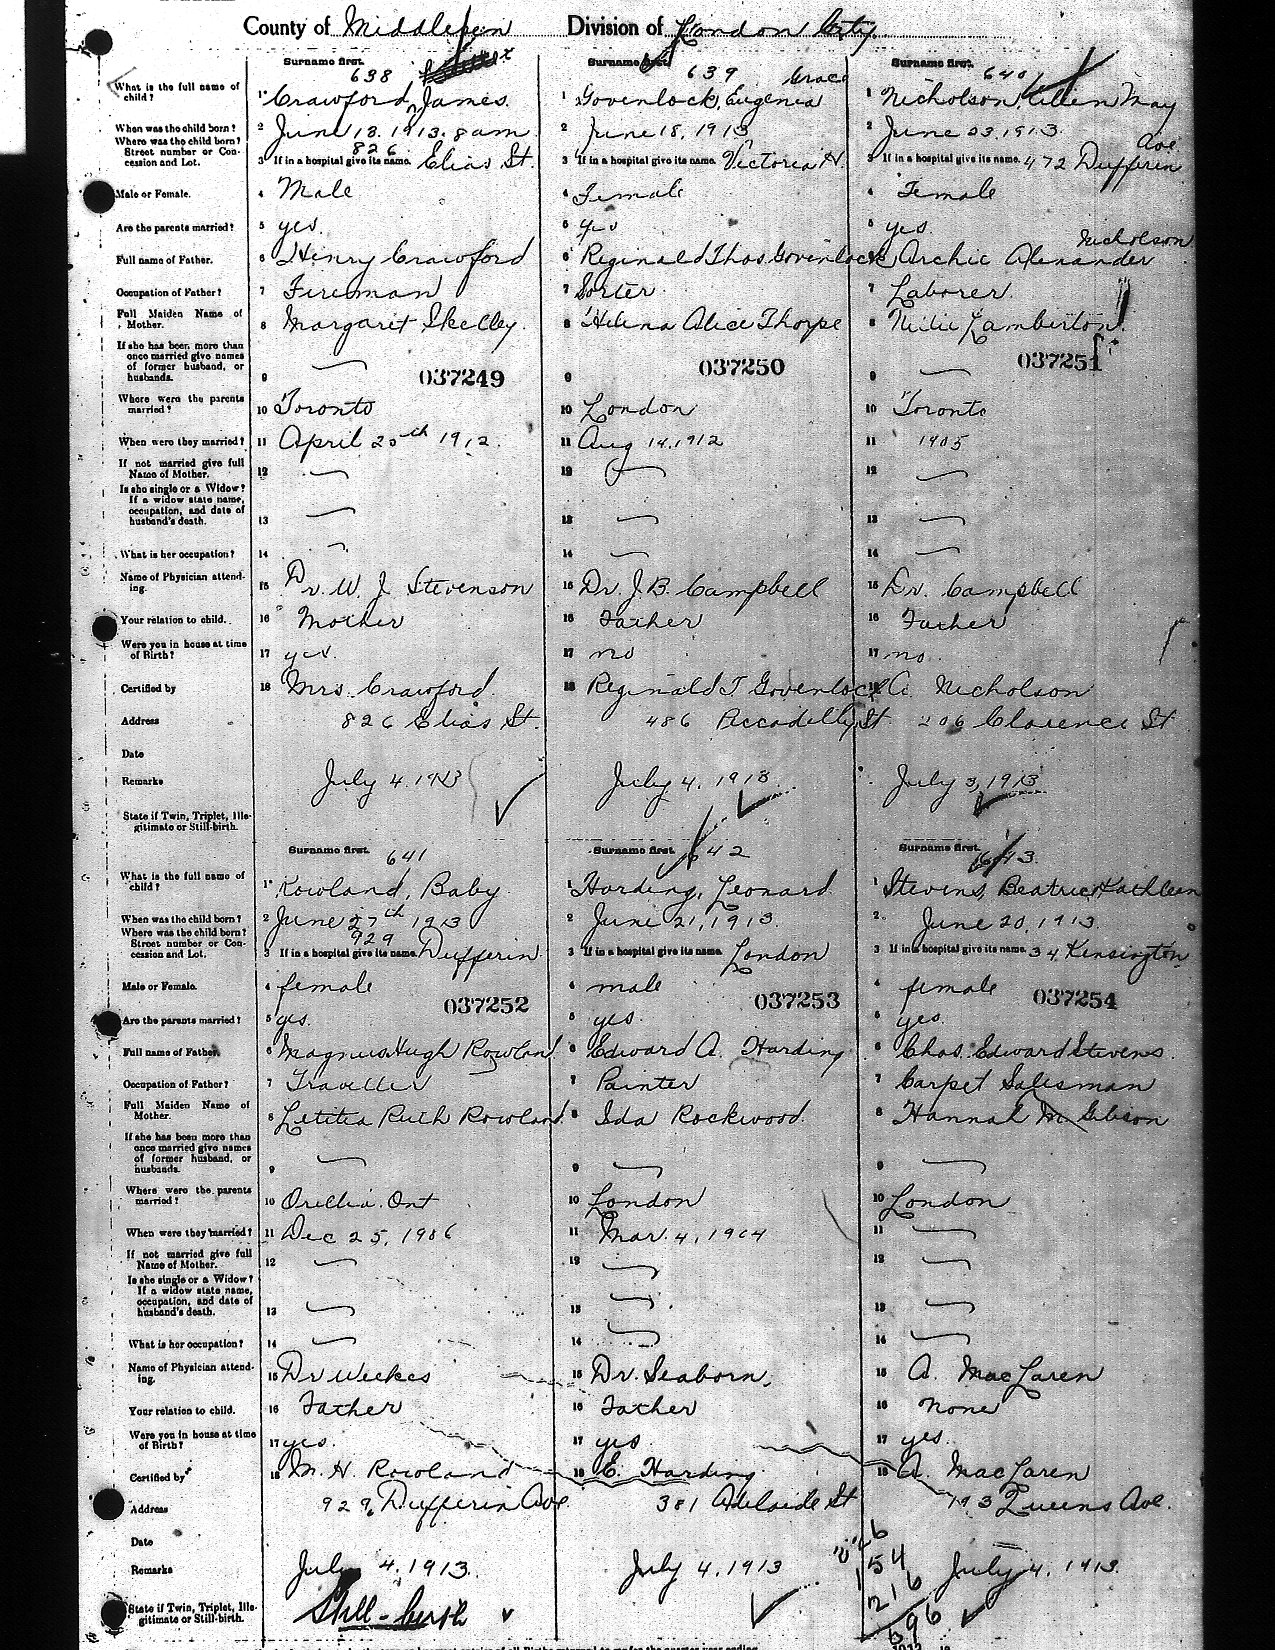 County of Middlesex Division of London City
Surname first. Surname first. Surname first.
638 639 640
What is the full name of child? 1 Crawford, James. 1 Govenlock, Eugenia Grace 1 Nicholson, May
When was the child born? 2 June 18. 1913. 8 am 2 June 18, 1913 2 June 23, 1913
Where was the child born? Street number or Concession and Lot. 3 If in a hospital give its name. 826 Elias St. 3 If in a hospital give its name. Victoria H. 3 If in a hospital give its name. 472 Dufferin Ave
Male or Female. 4 Male 4 Female 4 Female
Are the parents married? 5 yes. 5 yes 5 yes.
Full name of Father. 6 Henry Crawford 6 Reginald Thos. Govenlock 6 Archie Alexander Nicholson
Occupation of Father? 7 Fireman 7 Sorter 7 Laborer.
Full Maiden Name of Mother. 8 Margaret Skelley. 8 Helena Alice Thorpe 8 Lamberton.
If she has been more than once married give names of former husband, or husbands. 9 — 037249 9 037250 9 — 037251
Where were the parents married? 10 Toronto 10 London 10 Toronto
When were they married? 11 April 20th 1912. 11 Aug 14. 1912 11 1905
If not married give full Name of Mother. 12 — 12 — 12 —
Is she single or a Widow? If a widow state name, occupation, and date of husband's death. 13 — 13 — 13 —
What is her occupation? 14 — 14 — 14 —
Name of Physician attending. 15 Dr. W. J. Stevenson 15 Dr. J. B. Campbell 15 Dr. Campbell
Your relation to child. 16 Mother 16 Father 16 Father
Were you in house at time of Birth? 17 yes. 17 no 17 no.
Certified by 18 Mrs. Crawford. 18 Reginald T Govenlock 18 A. Nicholson
Address 826 Elias St. 486 Piccadelly St 206 Clarence St
Date
Remarks July 4. 1913 July 4, 1913 July 3, 1913
State if Twin, Triplet, Illegitimate or Still-birth.
Surname first. Surname first. Surname first.
641 642 643
What is the full name of child? 1 Rowland, Baby 1 Harding, Leonard 1 Stevens, Beatrice Kathleen
When was the child born? 2 June 27th 1913 2 June 21, 1913. 2 June 20, 1913.
Where was the child born? Street number or Concession and Lot. 3 If in a hospital give its name. 929 Dufferin 3 If in a hospital give its name. London 3 If in a hospital give its name. 34 Kensington
Male or Female. 4 female 4 male 4 female
037252 037253 037254
Are the parents married? 5 yes. 5 yes. 5 yes.
Full name of Father. 6 Magnus Hugh Rowland 6 Edward A. Harding 6 Chas. Edward Stevens.
Occupation of Father? 7 Traveller 7 Painter 7 Carpet Salesman
Full Maiden Name of Mother. 8 Letitia Ruth Rowland. 8 Ida Rockwood. 8 Hannah M. Gibson
If she has been more than once married give names of former husband, or husbands. 9 — 9 — 9 —
Where were the parents married? 10 Orillia. Ont 10 London 10 London
When were they married? 11 Dec 25, 1906 11 Mar. 4, 1904 11 —
If not married give full Name of Mother. 12 — 12 — 12 —
Is she single or a Widow? If a widow state name, occupation, and date of husband's death. 13 — 13 — 13 —
What is her occupation? 14 — 14 — 14 —
Name of Physician attending. 15 Dr Weekes 15 Dr. Seaborn, 15 A. MacLaren
Your relation to child. 16 Father 16 Father 16 None
Were you in house at time of Birth? 17 yes. 17 yes 17 yes.
Certified by 18 M. H. Rowland 18 E. Harding 18 A. MacLaren
Address 929 Dufferin Ave. 381 Adelaide St 193 Queens Ave.
Date
Remarks July 4. 1913. July 4, 1913 July 4, 1913.
154
216
State if Twin, Triplet, Illegitimate or Still-birth. Still-birth
396